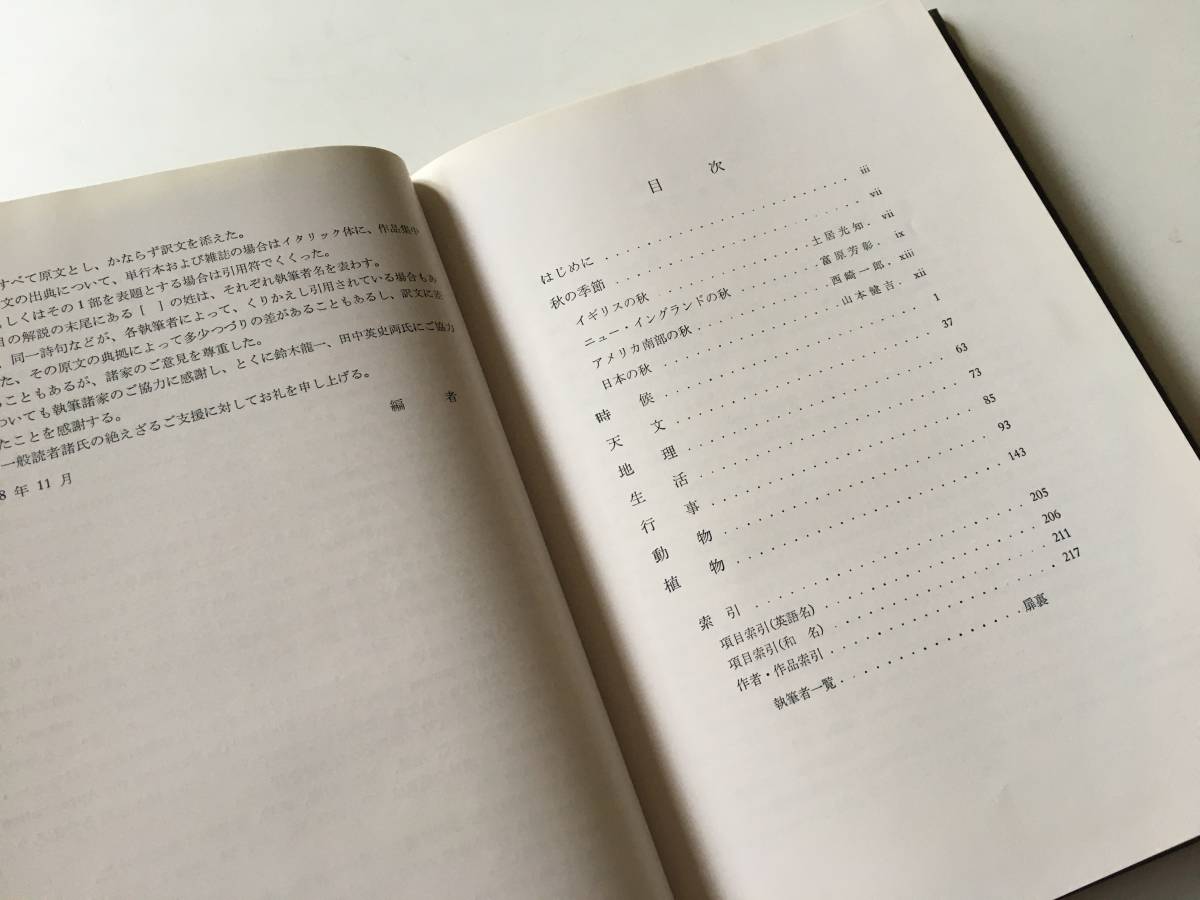 すべて原文とし、かならず訳文を添えた。
文の出典について、単行本および雑誌の場合はイタリック体に、作品集中
しくはその1部を表題とする場合は引用符でくくった。
目の解説の末尾にある [ ] の姓は、それぞれ執筆者名を表わす。
、同一詩句などが、各執筆者によって、くりかえし引用されている場合もあ
た、その原文の典拠によって多少つづりの差があることもあるし、訳文に差
ることもあるが、諸家のご意見を尊重した。
ついても執筆諸家のご協力に感謝し、とくに鈴木龍一、田中英史両氏にご協力
たことを感謝する。
一般読者諸氏の絶えざるご支援に対してお礼を申し上げる。
8 年 11 月
編 者
目 次
はじめに iii
秋の季節 vii
イギリスの秋 土居光知 vii
ニュー・イングランドの秋 富原芳彰 ix
アメリカ南部の秋 西崎一郎 xiii
日本の秋 山本健吉 xii
時 候 1
天 文 37
地 理 63
生 活 73
行 事 85
動 物 93
植 物 143
索 引 205
項目索引(英語名) 206
項目索引(和 名) 211
作者・作品索引 217
執筆者一覧 扉裏